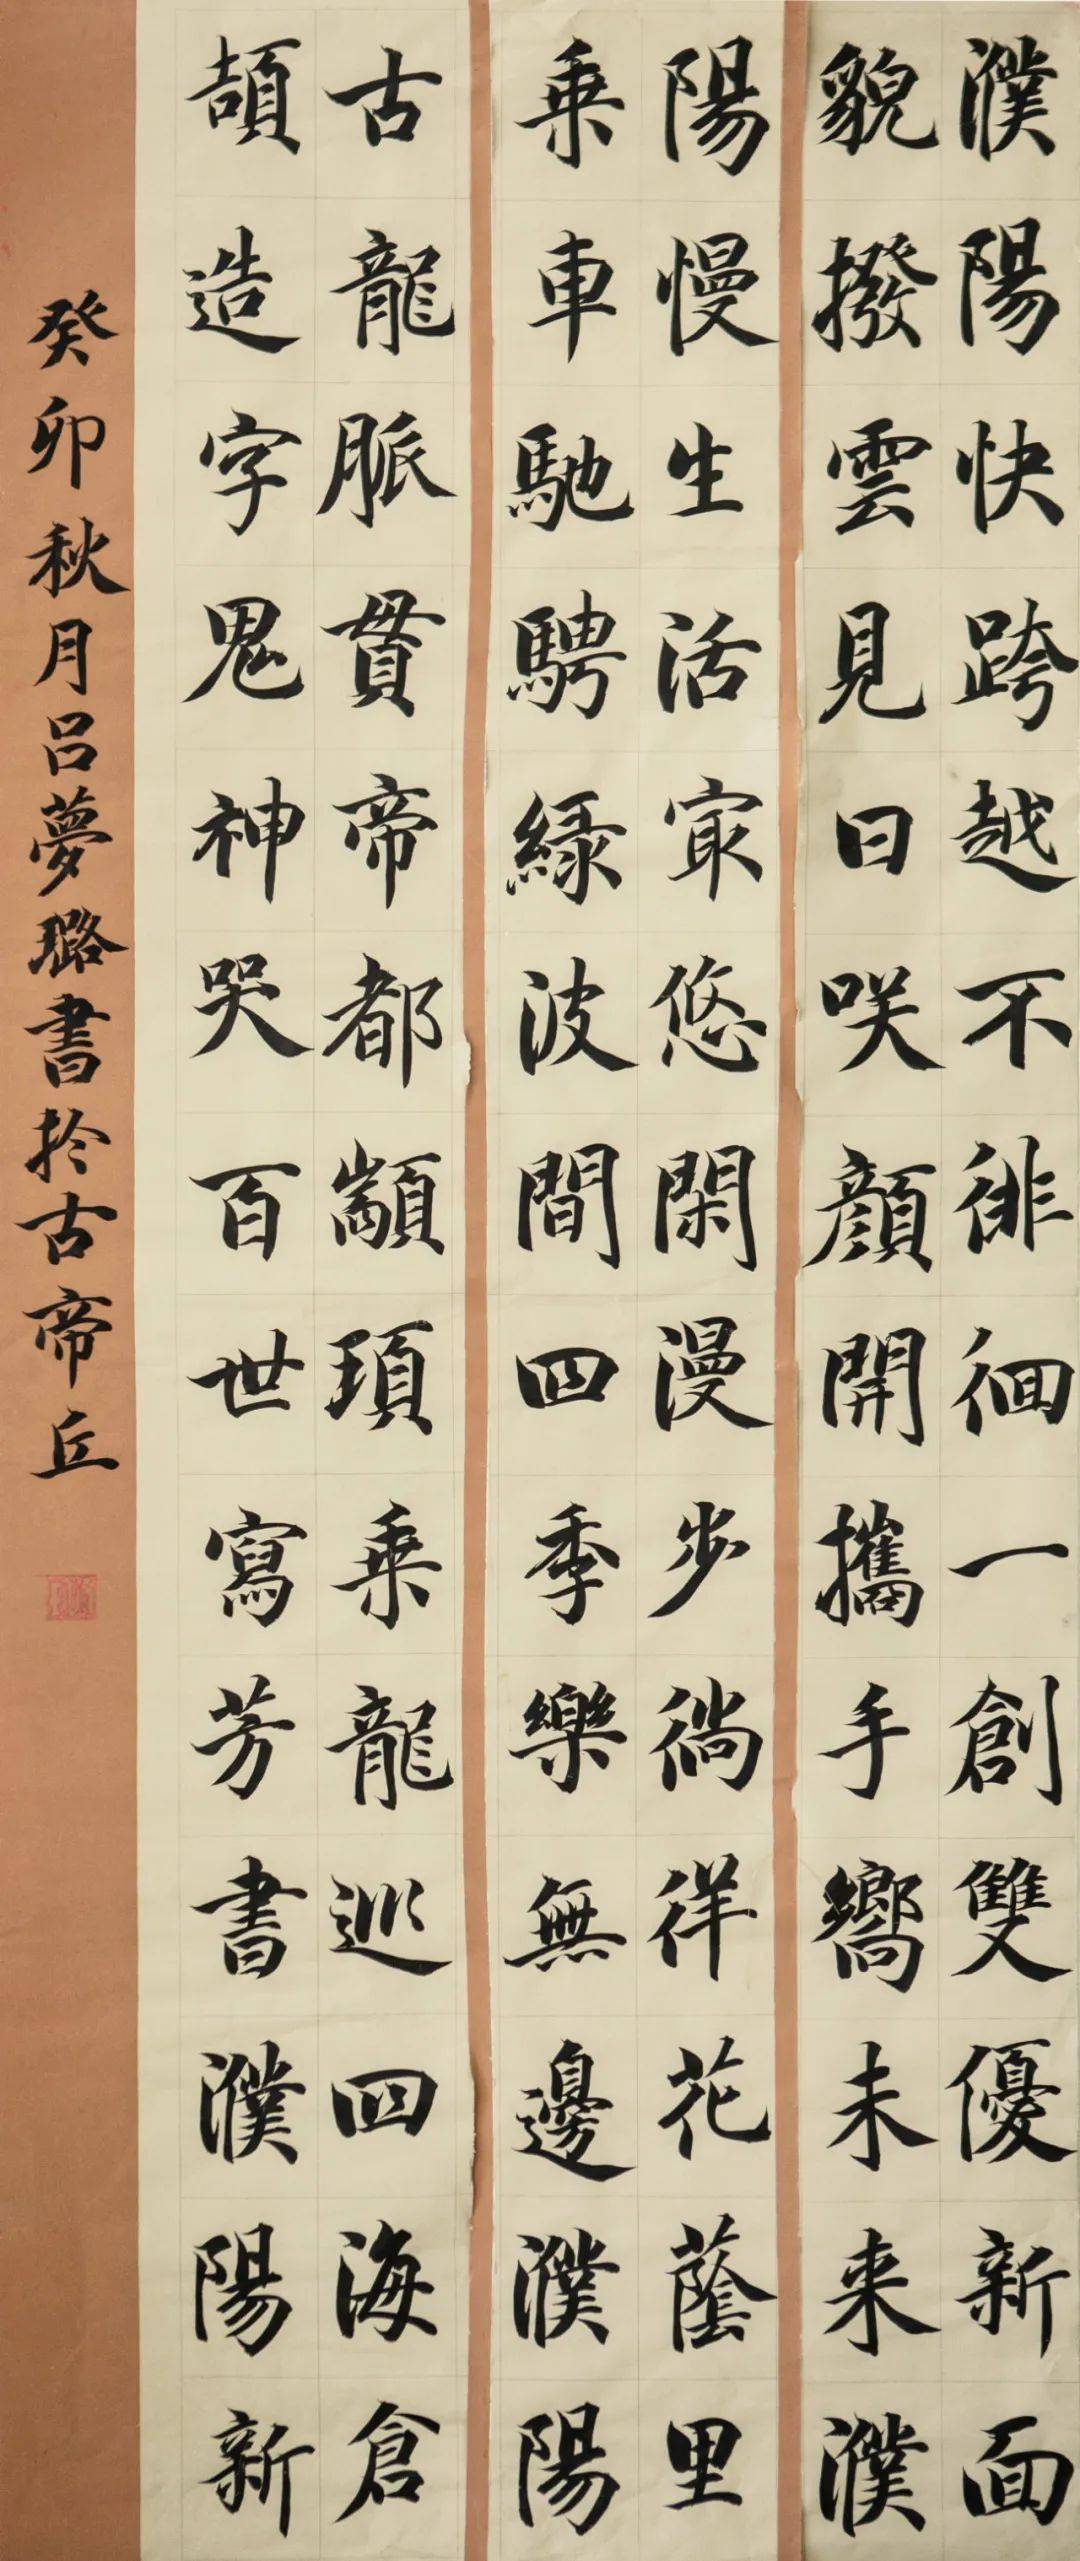 濮陽快跨越不徘徊一創雙優新面
貌撥雲見日咲顔開攜手嚮未来濮
陽慢生活冣悠閑漫步徜徉花蔭里
乗車馳騁緑波間四季樂無邊濮陽
古龍脈貫帝都顓頊乗龍巡四海倉
頡造字鬼神哭百世寫芳書濮陽新
癸卯秋月吕夢璐書扵古帝丘